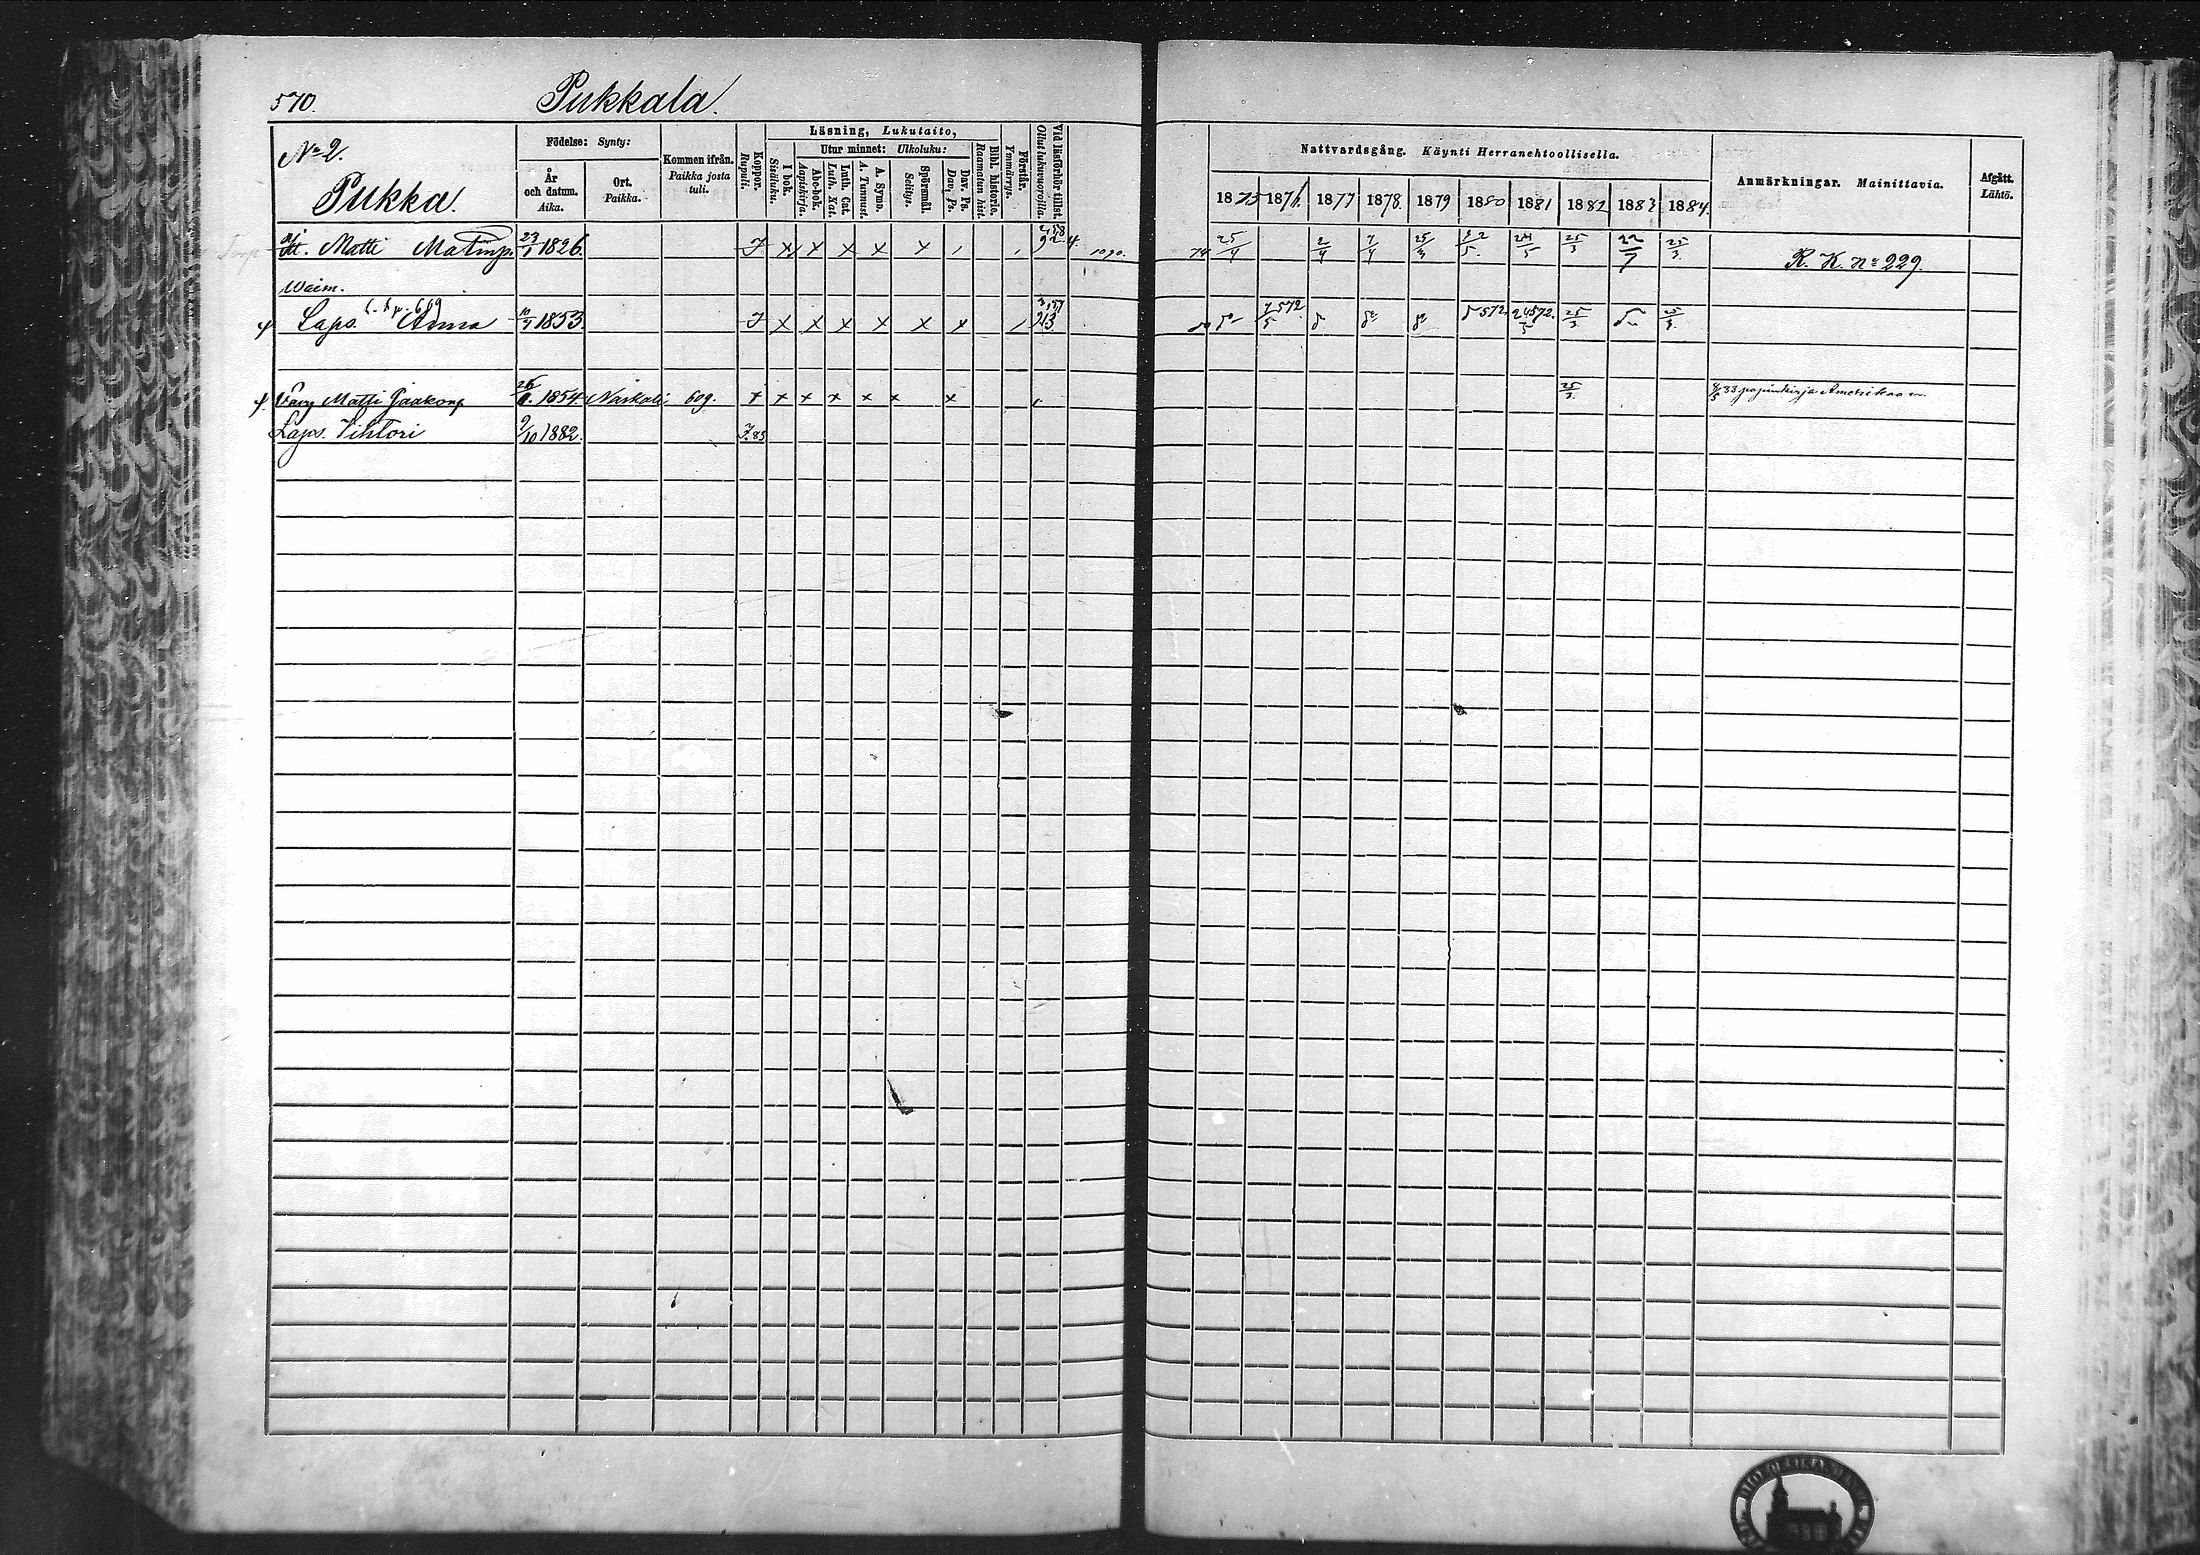 570. Pukkala.
No 2.
Pukka.
Födelse: Synty:
År och datum. Aika.
Ort. Paikka.
Kommen ifrån. Paikka josta tuli.
Koppor. Rupuli.
Läsning, Lukutaito,
I bok. Sisäluku.
Utur minnet: Ulkoluku:
Abc-bok. Aapiskirja.
Luth. Cat. Luth. Kat.
A. Symb. A. Tunnust.
Spörsmål. Selitys.
Dav. Ps. Dav. Ps.
Bibl. historie. Raamatun hist.
Förstår. Ymmärrys.
Vid läsförhör tillst. Ollut lukuvuoroilla.
Nattvardsgång. Käynti Herranehtoollisella.
1875 1876 1877 1878 1879 1880 1881 1882 1883 1884.
Anmärkningar. Mainittavia.
Afgått. Lähtö.
Matti Matinp. 23/1 1826. 1090. 25/4 2/4 7/4 25/3 24/5 25/3 22/7 25/3 R. K. no 229.
Waim.
Laps. Anna 10/7 1853. 7 572/5 5 572 24 572/5 25/3 25/3
Vävy Matti Jaakonp 26 1854. Naskali 609. 25/3 8/5 83 papinkirja Amerikaan.
Laps. Vihtori 9/10 1882. 83